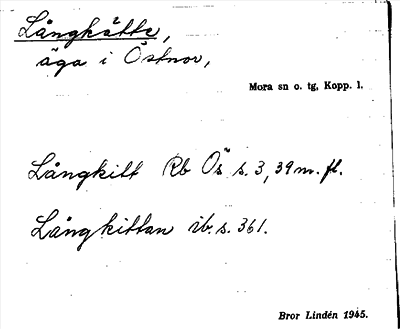 Långhätte,
äga i Östnor,
Mora sn o. tg, Kopp. l.
Långhitt Rb Ös s. 3, 39 m. fl.
Långhittan ib. s. 361.
Bror Lindén 1945.